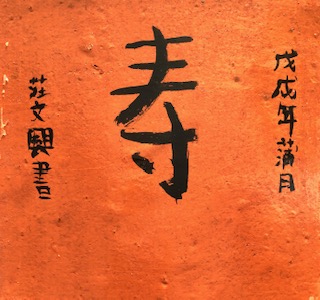 戊戌年蒲月
寿
莊文興書